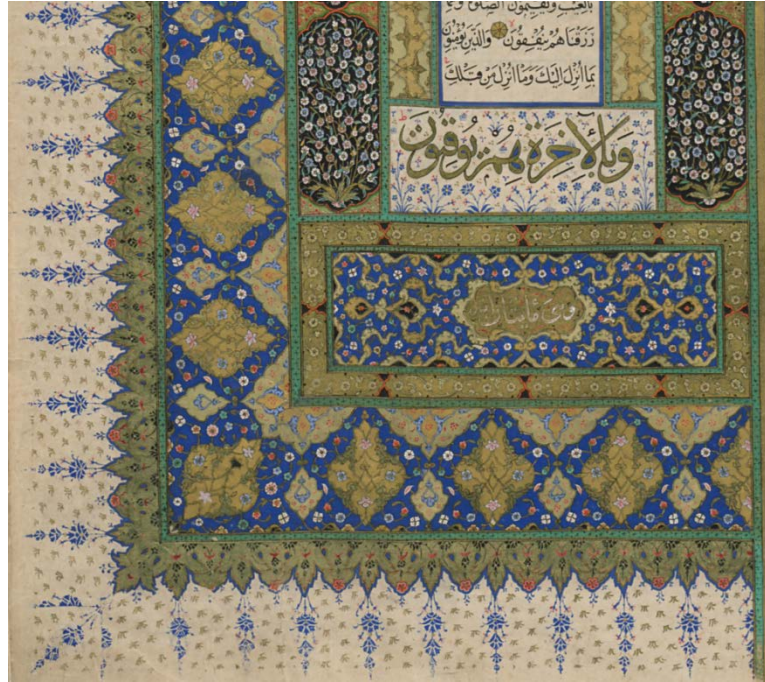 بِالْغَيْبِ وَيُقِيمُونَ الصَّلٰوةَ وَمِمَّا
رَزَقْنَاهُمْ يُنْفِقُونَ وَالَّذِينَ يُؤْمِنُونَ
بِمَا أُنْزِلَ إِلَيْكَ وَمَا أُنْزِلَ مِنْ قَبْلِكَ
وَبِالْآخِرَةِ هُمْ يُوقِنُونَ